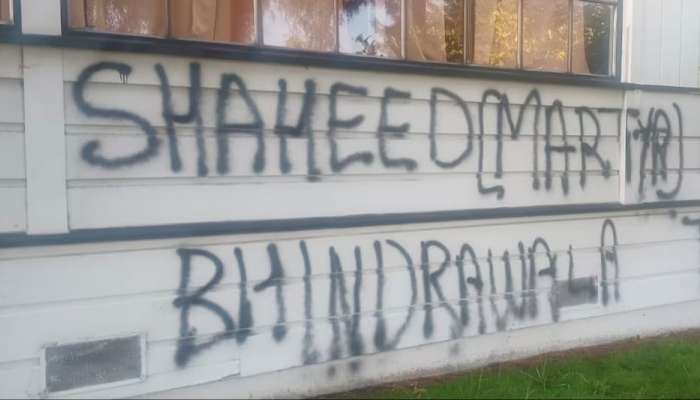 SHAHEED [MARTYR]
BHINDRAWALA